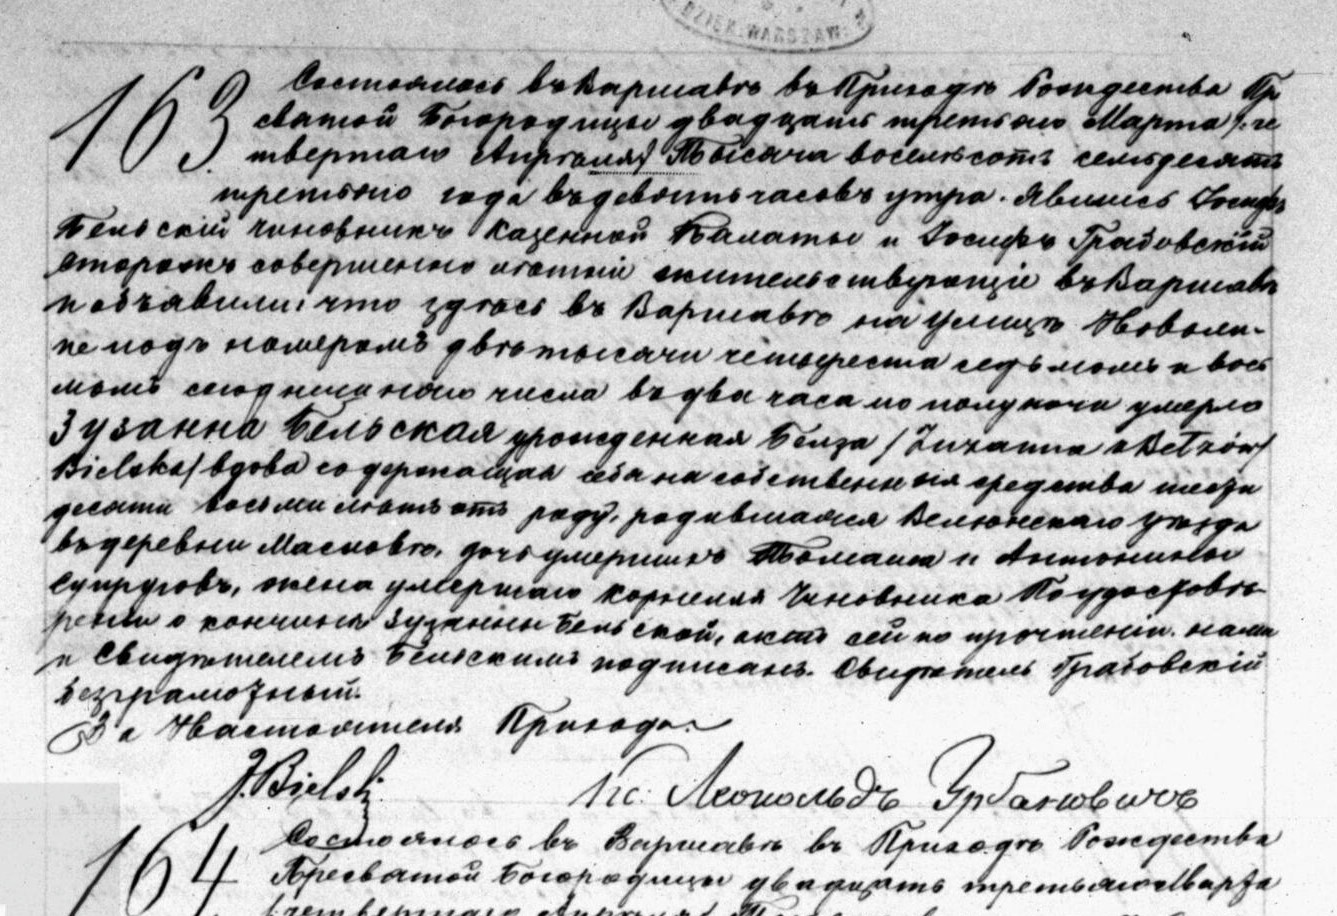 DZIEK. WARSZAW.
163 Состоялось въ Варшавѣ въ Приходѣ Рождества Пре
святой Богородицы двадцать третьяго Марта /: че
твертаго Апрѣля/ Тысяча восемьсотъ семьдесятъ
третьяго года въ девять часовъ утра. Явились Іосифъ
Бельскій чиновникъ Казенной Палаты и Іосифъ Грабовскій
сторожъ совершенно лѣтніи жительствующіе въ Варшавѣ
и объявили: что здѣсь въ Варшавѣ на улицѣ Новоли-
пе подъ номеромъ двѣ тысячи четыреста седьмомъ и вось
мымъ сегодняшняго числа въ два часа по полуночи умерла
Зузанна Бельская урожденная Белза / Zuzanna z Bełzów
Bielska/ вдова содержащая себя на собственныя средства шесть
десяти восьми лѣтъ отъ роду, родившаяся Велюнскаго уѣзда
въ деревни Масловѣ, дочь умершихъ Томаша и Антонины
супруговъ, жена умершаго Корнелія Чиновника По удостовѣ-
реніи о кончинѣ Зузанны Бельской, актъ сей по прочтеніи нами
и Свидѣтелемъ Бельскимъ подписанъ. Свидѣтель Грабовскій
безграмотный.
За Настоятеля Прихода:
J. Bielski Кс. Леопольдъ Урбановичъ
164 Состоялось въ Варшавѣ въ Приходѣ Рождества
Пресвятой Богородицы двадцать третьяго Марта
/четвертаго Апрѣля/